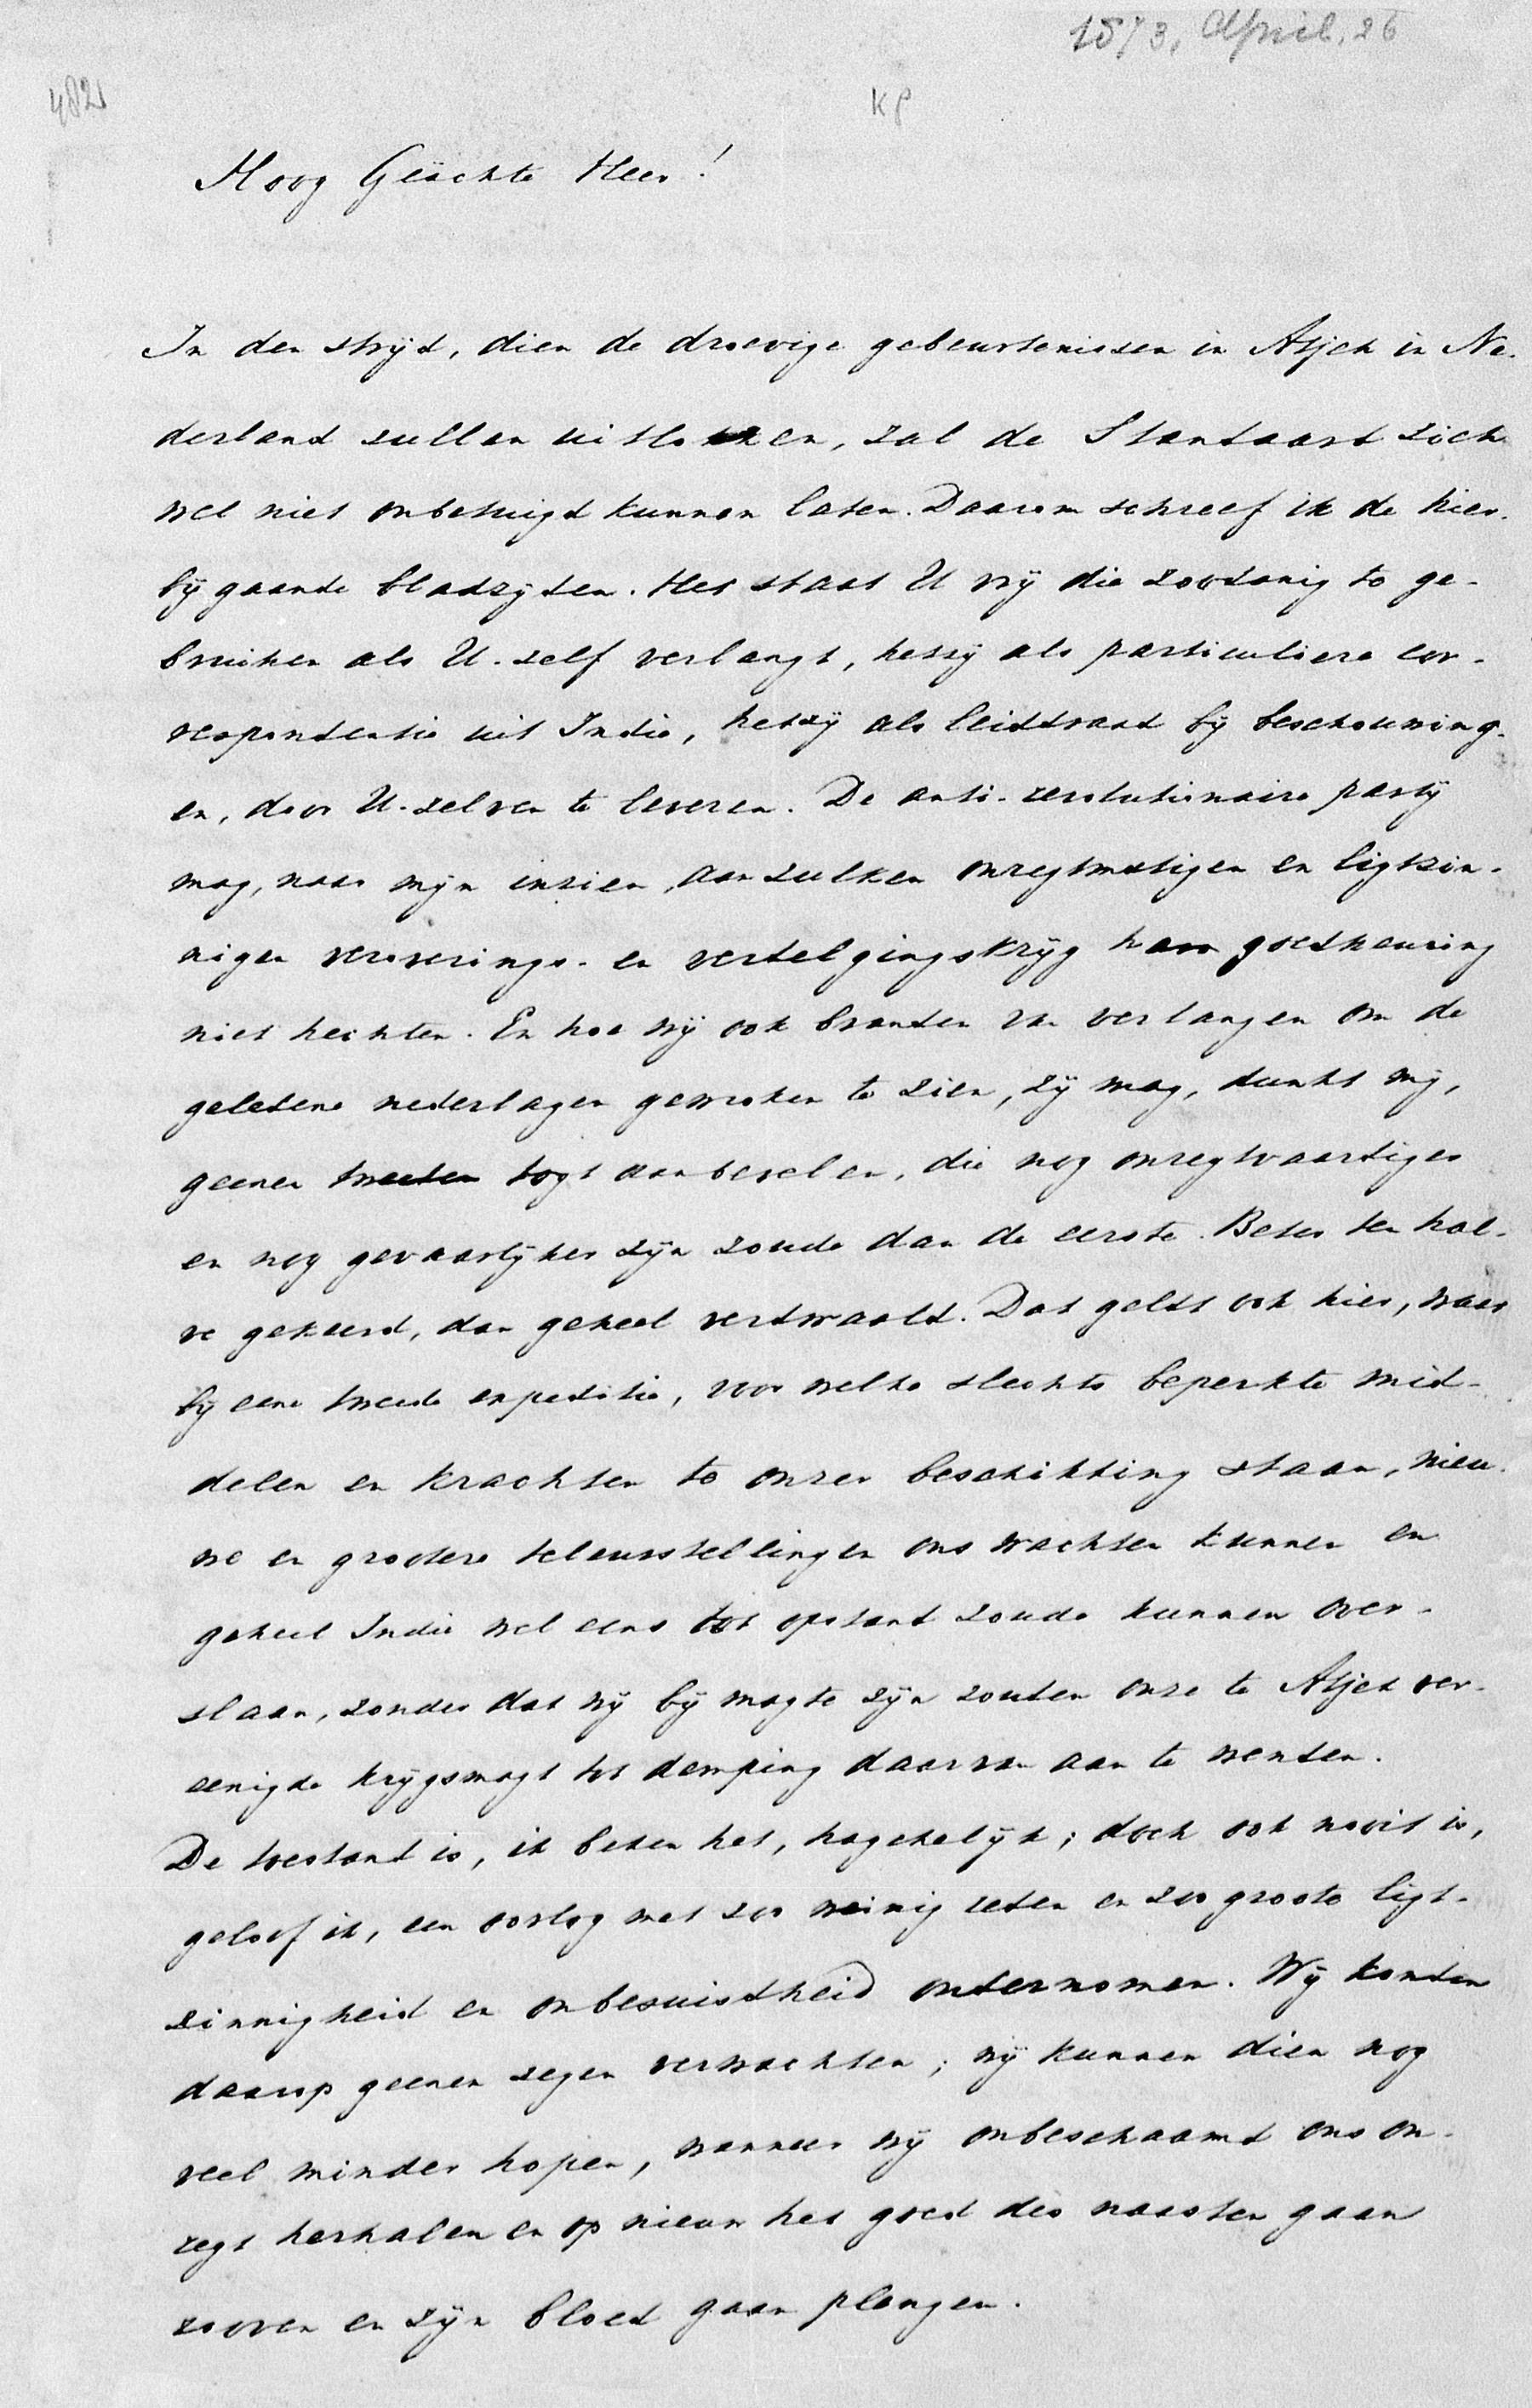 1873, April. 26
482
KP
Hoog Geächte Heer!
In den strijd, dien de droevige gebeurtenissen in Atjeh in Ne-
derland zullen uitlokken, zal de Standaard zich
wel niet onbetuigd kunnen laten. Daarom schreef ik de hier-
bij gaande bladzijden. Het staat U vrij die zoodanig te ge-
bruiken als U-zelf verlangt, hetzij als particuliere cor-
respondentie uit Indie, hetzij als leiddraad bij beschouwing-
en, door U-zelven te leveren. De anti-revolutionaire partij
mag, naar mijn inzien, aan zulken onregtmatigen en ligtzin-
nigen verovering- en verdelgingskrijg haar goedkeuring
niet hechten. En hoe wij ook branden van verlangen om de
geledene nederlagen gewroken te zien, zij mag, dunkt mij,
geenen tweeden togt aanbevelen, die nog onregtvaardiger
en nog gevaarlijker zijn zoude dan de eerste. Beter ten hal-
ve gekeerd, dan geheel verdwaald. Dat geldt ook hier, waar
bij eene tweede expeditie, voor welke slechts beperkte mid-
delen en krachten te onzer beschikking staan, nieu-
we en grootere teleurstellingen ons wachten kunnen en
geheel Indie wel eens tot opstand zoude kunnen over-
slaan, zonder dat wij bij magte zijn zouden onze te Atjeh ver-
eenigde krijgsmagt tot demping daarvan aan te wenden.
De toestand is, ik beken het, hagchelijk; doch ook nooit is,
geloof ik, een oorlog met zoo weinig reden en zoo groote ligt-
zinnigheid en onbesuisdheid ondernomen. Wij konden
daarop geenen zegen verwachten; wij kunnen dien nog
veel minder hopen, wanneer wij onbeschaamd ons on-
regt herhalen en op nieuw het goed des naasten gaan
rooven en zijn bloed gaan plengen.